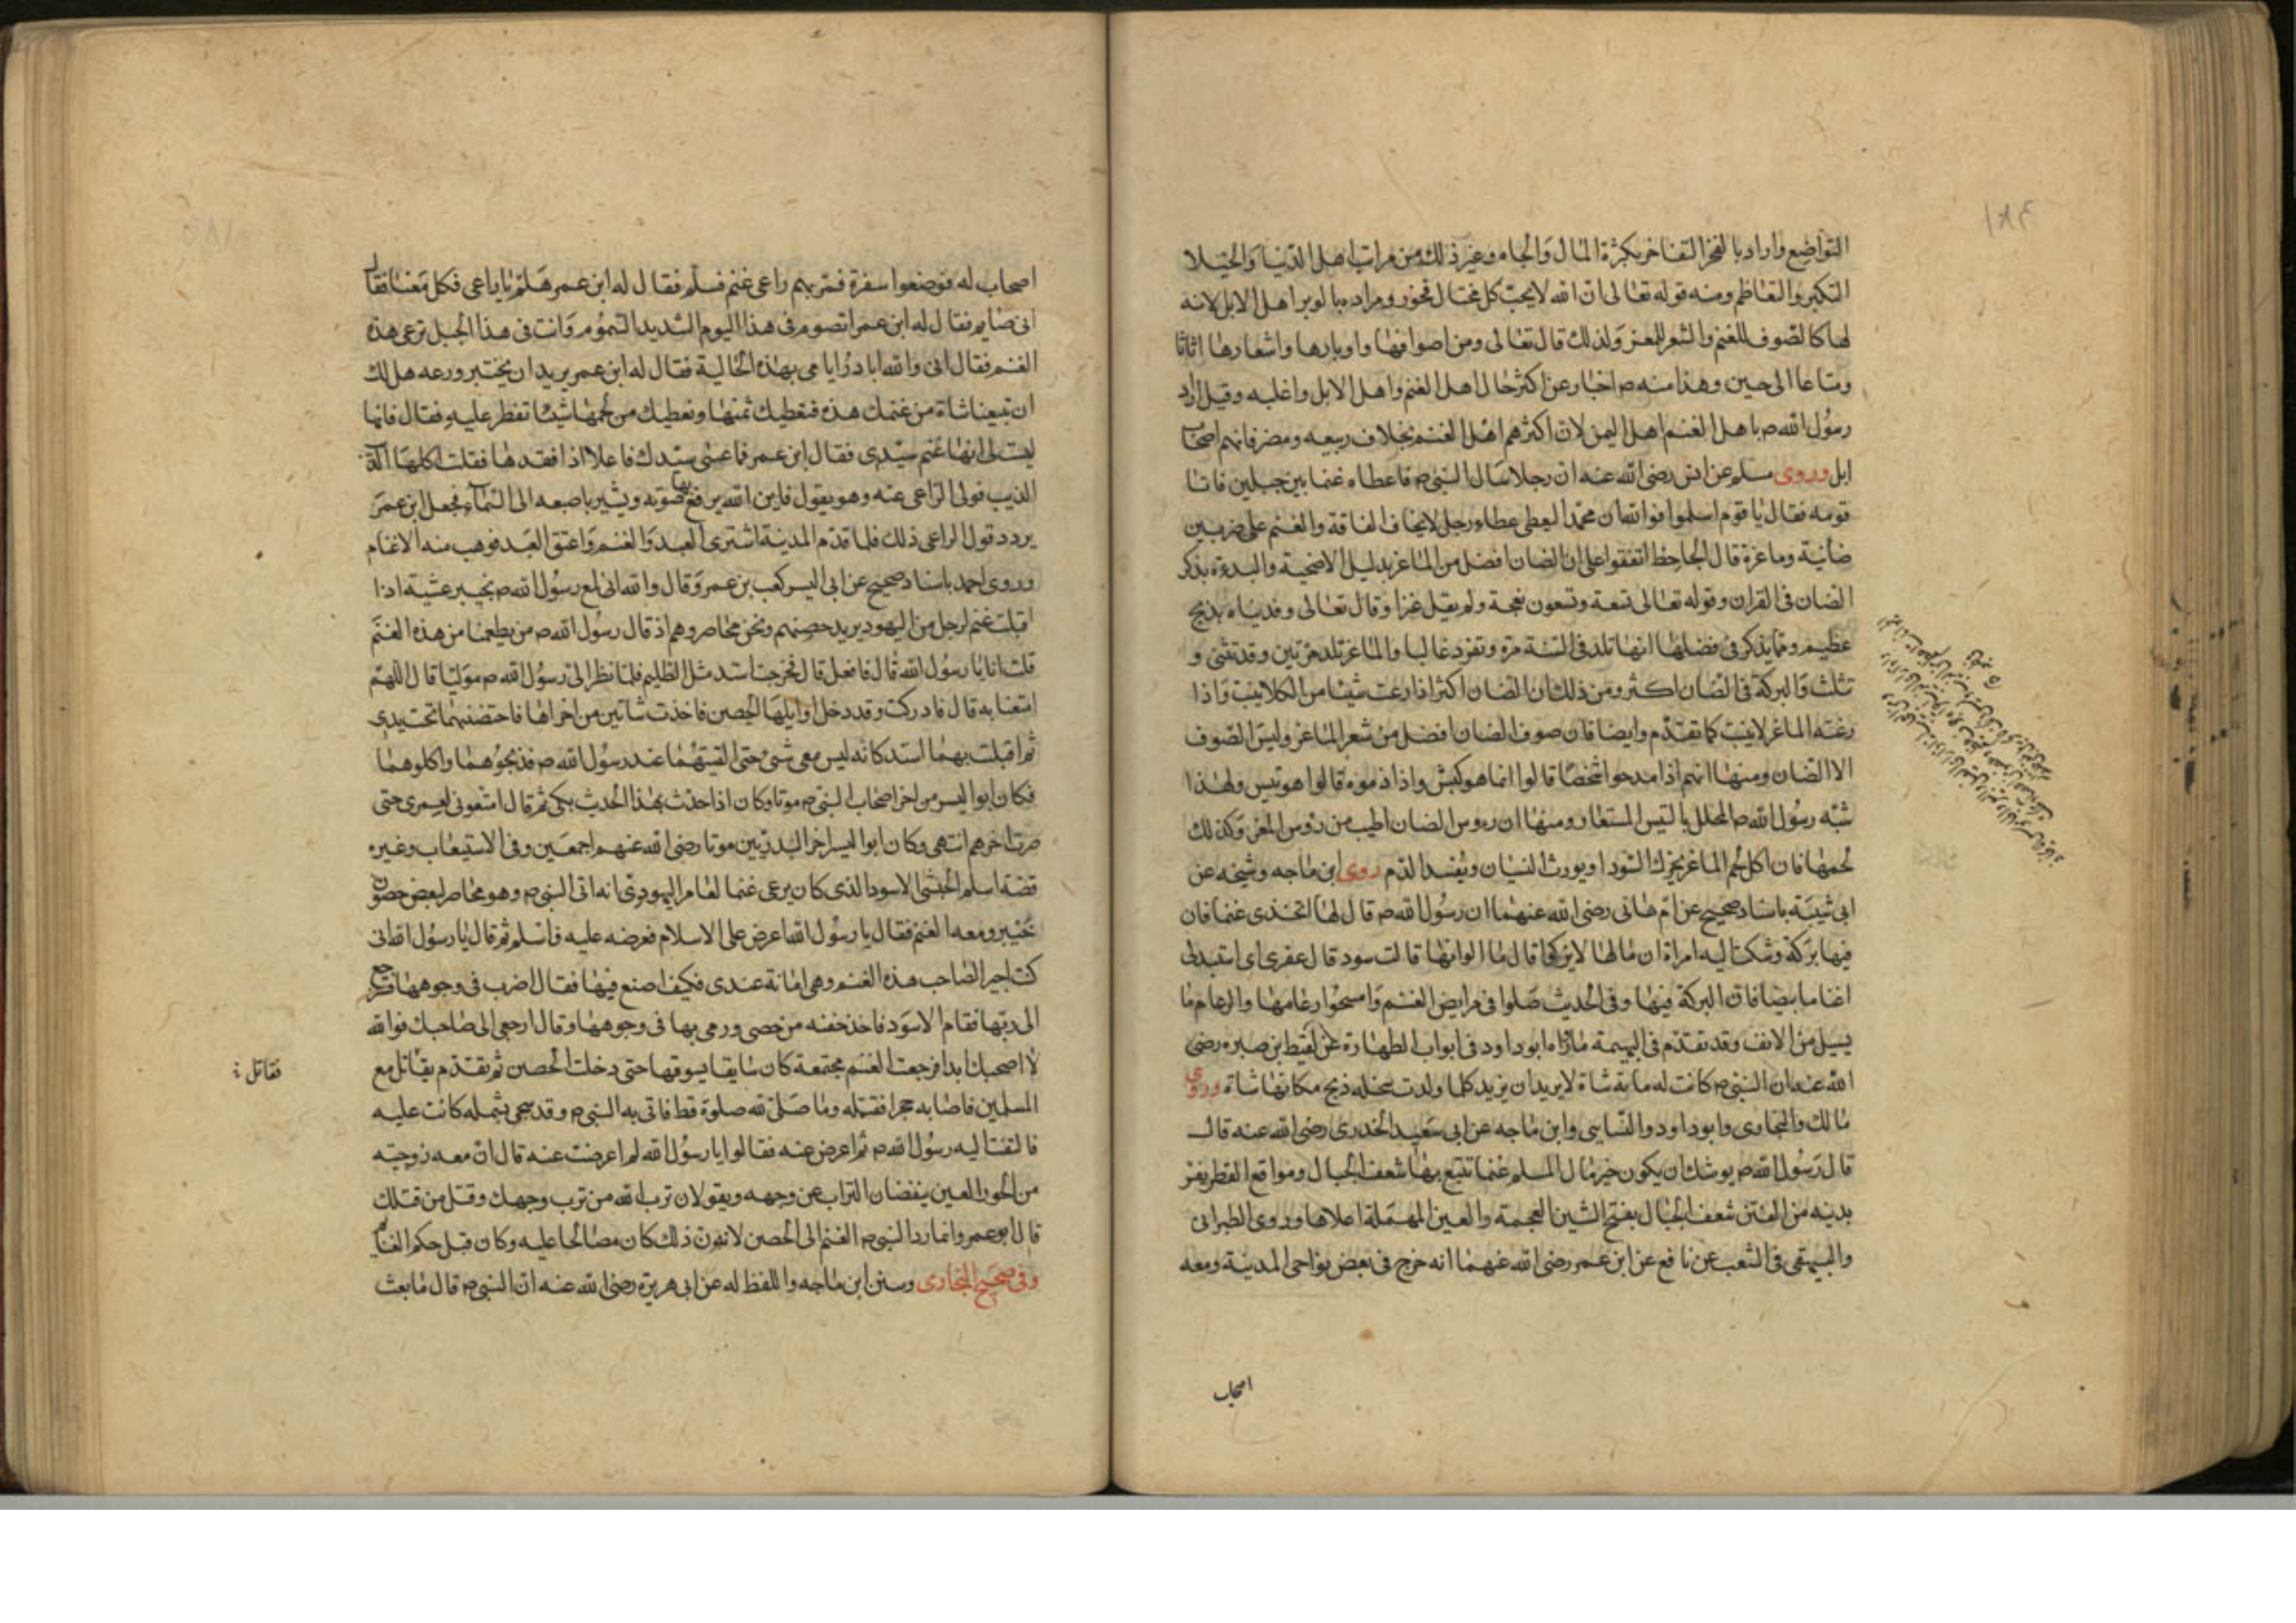 التواضع واراد بالفخر التفاخر بكثرة المال والجاه وغير ذلك من مراتب اهل الدنيا والخيلا
التكبر والتعاظم ومنه قوله تعالى ان الله لا يحب كل مختال فخور ومراده بالوبر اهل الابل لانه
لها كالصوف للغنم والشعر للمعز ولذلك قال تعالى ومن اصوافها واوبارها واشعارها اثاثا
ومتاعا الى حين وهذا منه ص اخبار عن اكثر حال اهل الغنم واهل الابل واغلبه وقيل اراد
رسول الله ص باهل الغنم اهل اليمن لان اكثرهم اهل الغنم بخلاف ربيعه ومضر فانهم اصحاب
ابل وروى مسلم عن انس رضى الله عنه ان رجلا سال النبي ص فاعطاه غنما بين جبلين فاتا
قومه فقال يا قوم اسلموا فوالله ان محمدا ليعطى عطاء رجل لا يخاف الفاقة والغنم على ضربين
ضأنية وماعزة قال الجاحظ اتفقوا على ان الضان افضل من الماعز بدليل الاضحية والبدءة بذكر
الضان فى القران وقوله تعالى تسعة وتسعون نعجة ولم يقل عنزا وقال تعالى وفديناه بذبح
عظيم ومما يذكر فى فضلها انها تلد فى السنة مرة وتفرد غالبا والماعز تلد مرتين وقد تثنى و
تثلث والبركة فى الضان اكثر ومن ذلك ان الضان اكثر اذا رعت شيئا من الكلا ينبت واذا
رعته الماعز لا ينبت كما تقدم وايضا فان صوف الضان افضل من شعر الماعز وليس الصوف
الا الضان ومنها انهم اذا مدحوا شخصا قالوا انما هو كبش واذا ذموه قالوا هو تيس ولهذا
شبه رسول الله ص المحلل بالتيس المستعار ومنها ان روس الضان اطيب من روس المعز وكذلك
لحمها فان اكل لحم الماعز يحرك السودا ويورث النسيان ويفسد الدم روى ابن ماجه وشيخه عن
ابى شيبة باسناد صحيح عن ام هانى رضى الله عنهما ان رسول الله ص قال لها اتخذى غنما فان
فيها بركة وشكت اليه امراة ان مالها لا يزكى قال ما الوانها قالت سود قال عفرى اى استبدلى
اغناما بيضا فان البركة فيها وفى الحديث صلوا فى مرابض الغنم وامسحوا رغامها والرغام ما
يسيل من الانف وقد تقدم فى البهيمة ما رواه ابو داود فى ابواب الطهارة عن لقيط ابن صبره رضى
الله عنه ان النبي ص كانت له ماية شاة لا يريد ان يزيد كلما ولدت سخله ذبح مكانها شاة وروى
مالك والبخارى وابو داود والنسايى وابن ماجه عن ابى سعيد الخدرى رضى الله عنه قال
قال رسول الله ص يوشك ان يكون خير مال المسلم غنما تتبع بها شعف الجبال ومواقع القطر يفر
بدينه من الفتن شعف الجبال بفتح الشين المعجمة والعين المهملة اعلاها وروى الطبرانى
والبيهقى فى الشعب عن نافع عن ابن عمر رضى الله عنهما انه خرج فى بعض نواحى المدينة ومعه
اصحاب
اصحاب له فوضعوا سفرة فمر بهم راعى غنم فسلم فقال له ابن عمر هلم يا راعى فكل معنا فقال
انى صايم فقال له ابن عمر اتصوم فى هذا اليوم الشديد السموم وانت فى هذا الجبل ترعى هذه
الغنم فقال انى والله ابادر ايامى بهذه الخالية فقال له ابن عمر يريد ان يختبر ورعه هل لك
ان تبيعنا شاة من غنمك هذه فنعطيك ثمنها ونعطيك من لحمها شيئا تفطر عليه فقال فانها
ليست لى انها غنم سيدى فقال ابن عمر فما عسى سيدك فاعلا اذا فقدها فقلت اكلها
الذيب فولى الراعى عنه وهو يقول فاين الله يرفع بها صوته ويشير باصبعه الى السماء فجعل ابن عمر
يردد قول الراعى ذلك فلما قدم المدينة اشترى العبد والغنم واعتق العبد فوهب منه الاغنام
وروى احمد باسناد صحيح عن ابى اليسر كعب بن عمرو قال والله انى لمع رسول الله ص بخيبر عشية اذا
اقبلت غنم لرجل من اليهود يريد حصنهم ونحن محاصروهم اذ قال رسول الله ص من يطعمنا من هذه الغنم
قلت انا يا رسول الله قال فافعل قال فخرجت اشتد مثل الظليم فلما نظر الى رسول الله ص موليا قال اللهم
امتعنا به قال فادركت وقد دخل اوايلها الحصن فاخذت شاتين من اخراها فاحتضنتهما تحت يدى
ثم اقبلت بهما اشتد كانه ليس معى شئ حتى القيتهما عند رسول الله ص فذبحوهما واكلوهما
فكان ابو اليسر من اخر اصحاب النبي ص موتا وكان اذا حدث بهذا الحديث بكى ثم قال امتعونى لعمرى حتى
صرت اخرهم انتهى وكان ابو اليسر اخر البدريين موتا رضى الله عنهم اجمعين وفى الاستيعاب وغيره
قصة اسلم الحبشى الاسود الذى كان يرعى غنما لعامر اليهودى انه اتى النبي ص وهو محاصر لبعض حصون
خيبر ومعه الغنم فقال يا رسول الله اعرض على الاسلام فعرضه عليه فاسلم ثم قال يا رسول الله انى
كنت اجير الصاحب هذه الغنم وهى امانة عندى فكيف اصنع فيها فقال اضرب فى وجوهها فترجع
الى ربها فقام الاسود فاخذ حفنه من حصى ورمى بها فى وجوهها وقال ارجعى الى صاحبك فوالله
لا اصحبك ابدا فرجعت الغنم مجتمعة كان سايقا يسوقها حتى دخلت الحصن ثم تقدم يقاتل مع
فقاتل
المسلمين فاصابه حجر فقتله وما صلى لله صلوة قط فاتى به النبي ص وقد سجى بشمله كانت عليه
فالتفت اليه رسول الله ص ثم اعرض عنه فقالوا يا رسول الله لم اعرضت عنه قال ان معه زوجته
من الحور العين ينفضان التراب عن وجهه ويقولان ترب الله من ترب وجهك وقتل من قتلك
قال ابو عمر وانما رد النبي ص الغنم الى الحصن لان ذلك كان مصالحا عليه وكان قبل حكم الغنايم
وفى صحيح البخارى وسنن ابن ماجه واللفظ له عن ابى هريرة رضى الله عنه ان النبي ص قال ما بعث